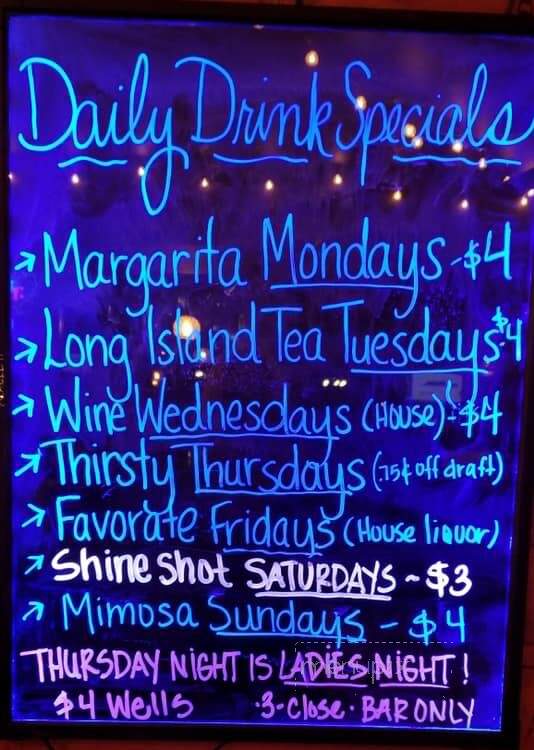 Daily Drink Specials
→ Margarita Mondays - $4
→ Long Island Tea Tuesdays $4
→ Wine Wednesdays (House) - $4
→ Thirsty Thursdays (.75¢ off draft)
→ Favorate Fridays (House liquor)
→ Shine Shot SATURDAYS ~ $3
→ Mimosa Sundays - $4
THURSDAY NIGHT IS LADIES NIGHT!
$4 Wells 3-Close · BAR ONLY
menupix